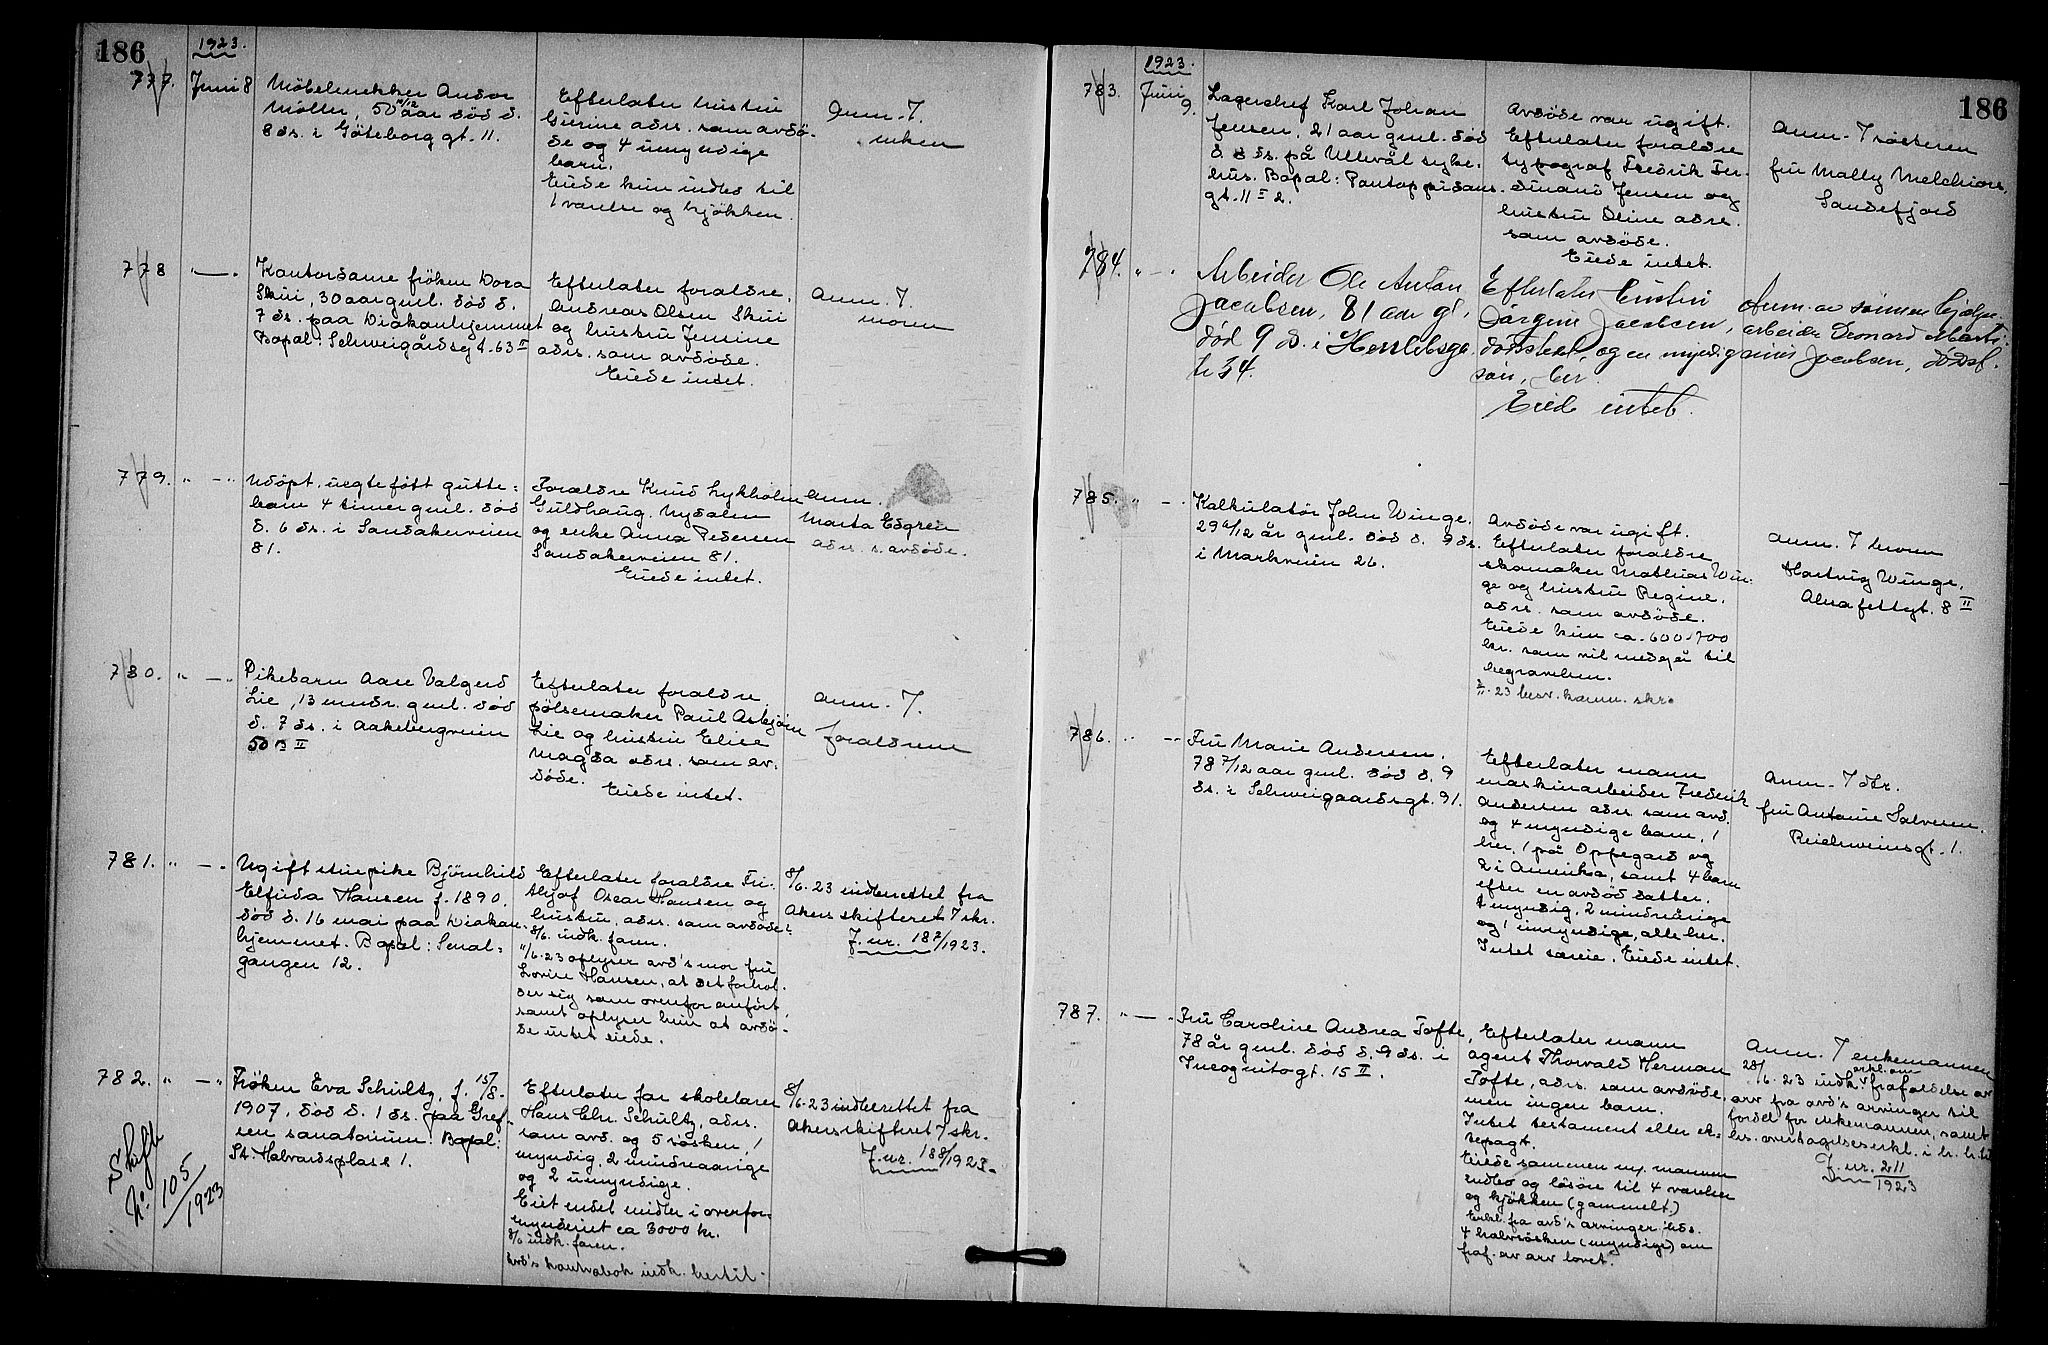 186
1923.
777.
Juni 8
Möbelsnekker Andor
Möller, 50 aar död d.
8 ds. i Göteborg gt. 11.
Efterlater hustru
adrs. som avdö-
de og 4 umyndige
barn.
Eiede kun indbo til
1 værelse og kjökken.
Anm. 7.
enken
778
" — "
Kontordame fröken Dora
Skui, 30 aar gml. död d.
7 ds. paa Diakonhjemmet
Bopal: Schweigårdsgt. 63 II
Efterlater foraldre,
Andreas Olsen Skui
og hustru Jensine
adrs. som avdöde.
Eiede intet.
Anm. 7.
moren
779.
" — "
Udöpt, uegte født gutte-
barn 4 timer gml. död
d. 6 ds. i Sandakerveien
81.
Foraldre Knud Lykholm
Guldhaug, Nydalen
og enke Anna Pedersen
Sandakerveien 81.
Eiede intet.
Anm.
Marta Edgren
adrs. s. avdöde.
780.
" — "
Pikebarn Aase Valgerd
Lie, 13 mndr. gml. död
d. 7 ds. i Aakebergveien
50 B II
Efterlater foraldre
pölsemaker Paul Asbjörn
Lie og hustru Elise
Magda adrs. som av-
döde.
Eiede intet.
Anm. 7.
foraldrene
781.
" — "
Ugift stuepike Björnhild
Elfrida Hansen f. 1890.
död d. 16 mai paa Diakon-
hjemmet. Bopal: Senal-
gangen 12.
Efterlater foraldre Fri-
thjof Oscar Hansen og
hustru, adrs. som avdöde?
8/6. indk. faren.
11/6-23 oplyser avd's mor fru
Lovise Hansen, at det forhol-
der sig som ovenfor anfört,
samt oplyser hun at avdö-
de intet eiede.
8/6. 23 indberettet fra
Akers skifteret 7 skr.
J. nr. 187/1923.
782.
" — "
Skifte
No. 105/1923
Fröken Eva Schultz, f. 15/8.
1907, död d. 1 ds. paa Gref-
sen sanatorium. Bopal:
St. Halvardsplass 1.
Efterlater far skolelærer
Hans Chr. Schultz, adrs.
som avd. og 5 søsken, 1
myndig, 2 mindreaarige
og 2 umyndige.
Eiet endel midler i overfor-
mynderiet ca 3000 kr.
8/6 indk. faren.
Avd's kontrabok indk. hertil.
8/6. 23 indberettet fra
Aker skifteret 7 skr.
J. nr. 188/1923.
1923.
186
783.
Juni
9.
Lagerchef Karl Johan
Jensen, 21 aar gml. död
d. 8 ds. på Ullevål syke-
hus. Bopal: Pontoppidans-
gt. 11 I 2.
Avdöde var ugift.
Efterlater foraldre
typograf Fredrik Fer-
dinand Jensen og
hustru Oline adrs.
som avdöde.
Eiede intet.
Anm. 7 søsteren
fru Mally Melchiors,
Sandefjord
784.
" — "
Arbeider Ole Anton
Jacobsen, 81 aar gl.,
død 9 ds. i Herslebsga-
te 34.
Efterlater hustru
Jørgine Jacobsen,
dødsstedet, og en myndig
søn, her.
Eied intet.
Anm. av sønnen hjelpe-
arbeider Leonard Marti-
nius Jacobsen, dødsst.
785.
" — "
Kalkulatör John Winge,
29 6/12 år gml. död d. 9 ds.
i Markveien 26.
Avdöde var ugift.
Efterlater foraldre
skomaker Mathias Win-
ge og hustru Regine,
adrs. som avdöde.
Eiede kun ca. 600-700
kr. som vil medgå til
begravelsen.
Anm. 7 broren
Hartvig Winge,
Alna fettgt. 8 II
786.
" — "
Fru Marie Andersen,
78 7/12 aar gml. död d. 9
ds. i Schweigaardsgt. 91.
Efterlater mann
maskinarbeider Frederik
Andersen adrs. som avd.
og 4 myndige barn, 1
her, 1 på Oppegård og
2 i Amerika, samt 4 barn
efter en avdöd datter,
1 myndig, 2 mindreårige
og 1 umyndige, alle her.
Intet særeie. Eiede intet.
Anm. 7 dtr.
fru Antonie Salvesen,
Reichweinsgt. 1.
787.
" — "
Fru Caroline Andrea Tofte,
78 år gml. död d. 9 ds. i
Incognitogt. 15 II.
Efterlater mann
agent Thorvald Herman
Tofte, adrs. som avdöde,
men ingen barn.
Intet testament eller ek-
tepagt.
Eiede sammen m. mannen
indbo og lösöre til 4 værelser
og kjökken (gammelt.)
Erkl. fra avd's arvinger :hds.
4 halvsösken (myndige) om
fraf. av arv lovet.
Anm. 7 enkemannen
28/6. 23 indk. erkl. om frafaldelse av
arv fra avd's arvinger til
fordel for enkemannen, samt
J. nr. 211/1923